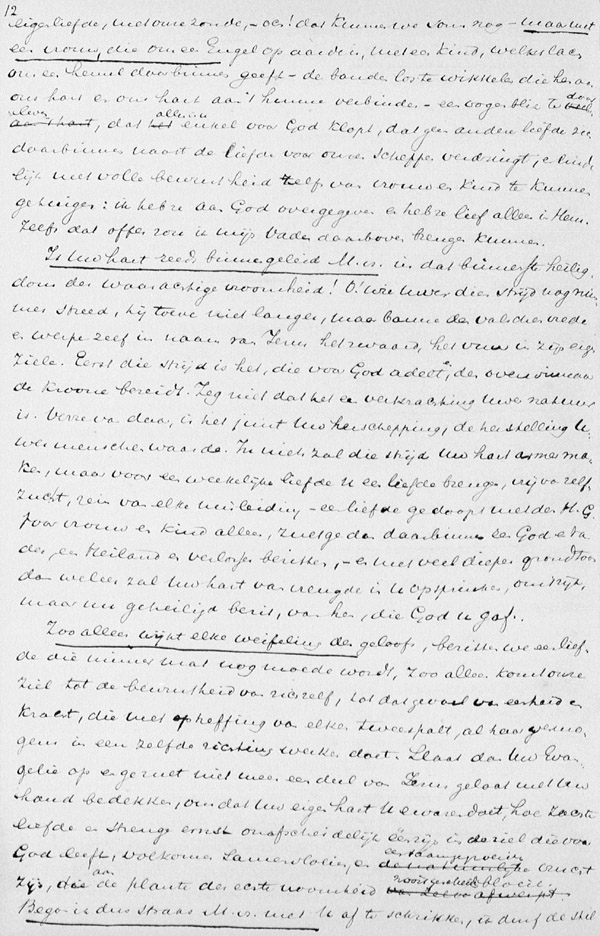 12
eigenliefde, met onze zonde, – och! dat kunnen we soms nog – maar met
een vrouw, die ons een Engel op aarde is, met een kind, welks lach
ons een hemel daarbinnen geeft – de banden los te wikkelen die hen aan
ons hart en ons hart aan 't hunne verbinden – een oogenblik te
dat enkel voor God klopt, dat geen andere liefde
daarbinnen naast de liefde voor onzen Schepper verdringt, eindelijk
met volle bewustheid zelfs van vrouw en kind te kunnen
getuigen: ik heb ze aan God overgegeven en heb ze lief alleen in Hem.
Zelfs dat offer zou ik mijn Vader daarboven brengen kunnen.
Is Uw hart reeds binnengeleid M. in dat binnenste heiligdom
der waarachtige vroomheid! O! wie Uwer dien strijd nog nimmer
streed, hij toeve niet langer, maar banne den valschen vrede
en werpe zelf in naam van Jezus het zwaard, het vuur in zijn eigen
ziele. Eerst die strijd is het, die voor God adelt, den overwinnaar
de kroone bereidt. Zeg niet dat het een verkrachting Uwer natuur
is. Verre van daar, is het juist Uw herschepping, de herstelling Uwer
menschenwaarde. In niets zal die strijd Uw hart armer maken,
maar voor een weekelijke liefde U een liefde brengen, vrij van zelfzucht,
rein van elke – een liefde gedoopt met den H. G.
Voor vrouw en kind alleen, zult ge dan daarbinnen een God en Vader,
een Heiland en verlosser bezitten, – en met veel dieper grondtoon
dan weleer zal Uw hart van vreugde in U opspringen, om 't rijk,
maar nu geheiligd bezit, van hen, die God U gaf.
Zoo alleen wijkt elke weifeling des geloofs, bezitten we een liefde
die nimmer mat nog moede wordt, zoo alleen komt onze
ziel tot de bewustheid van zichzelf, tot dat gevoel van eenheid en
kracht, die met opheffing van elken tweespalt, al haar vermogens
in een zelfde richting werken doet. Slaat dan Uw Evangelie
op en ge moet niet meer een deel van Jezus gelaat met Uw
hand bedekken, omdat Uw eigen hart U ervaren doet, hoe zachte
liefde en strenge ernst onafscheidelijk één zijn in de ziel die voor
God leeft, volkomen
zijn, die aan de plante der echte vroomheid
Begon ik dus straks M. met U af te schrikken, ik durf de stel